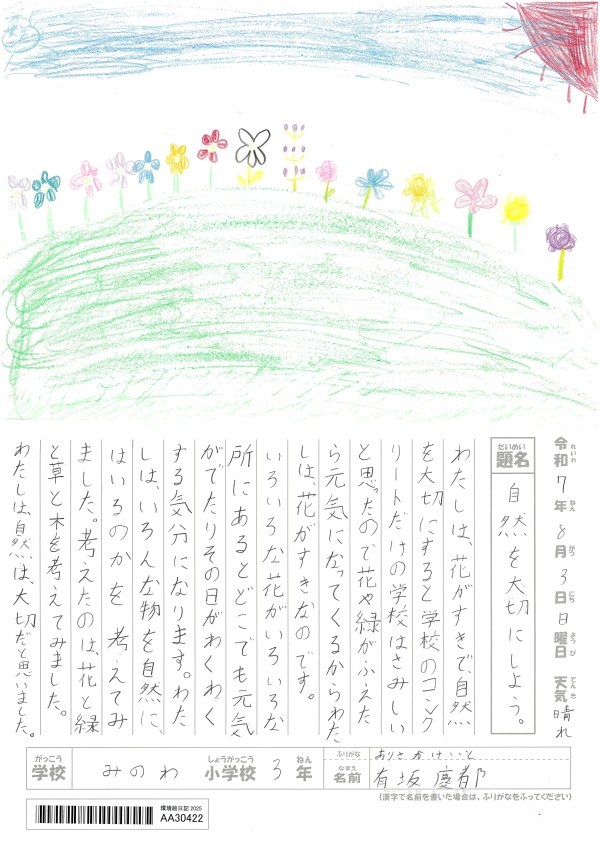 令和7年8月3日日曜日 天気晴れ
れいわ ねん がつ にち ようび てんき
だいめい
題名 自然を大切にしよう。
わたしは、花がすきで、自然
を大切にすると学校のコンク
リートだけの学校はさみしい
と思ったので花や緑がふえた
ら元気になってくるからわた
しは、花がすきなのです。
いろいろな花がいろいろな
所にあるとどこでも元気
がでたりその日がわくわく
する気分になります。わた
しは、いろんな物を自然に、
はいるのかを考えてみ
ました。考えたのは、花と緑
と草と木を考えてみました。
わたしは、自然は、大切だと思いました。
がっこう しょうがっこう ねん ふりがな ありさかけいと
学校 みのわ 小学校 3年 なまえ 名前 有坂慶都
(漢字で名前を書いた場合は、ふりがなをふってください)
環境絵日記 2025
AA30422